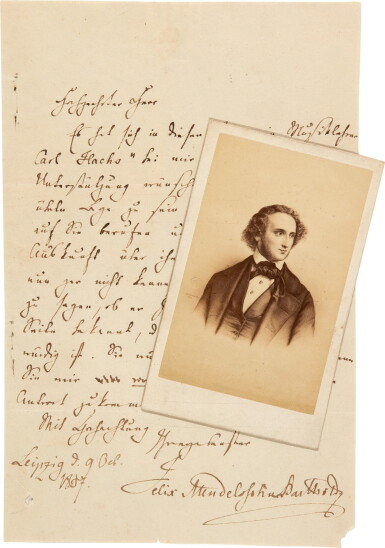 Hochgeehrter Herr
Es hat sich in dieser Musiklehrer
Carl Flachs" bei mir
Unterstützung wünscht
übeln Lage zu sein
auf Sie berufen
Auskunft über ihn
nun gar nicht kenne
zu sagen, ob er
Seite bekannt, d
würdig ist. Sie
Sie mir
Antwort zukomm
Mit Hochachtung
Ihr ergebenster
Leipzig d. 9 Oct.
1837.
Felix Mendelssohn Bartholdy